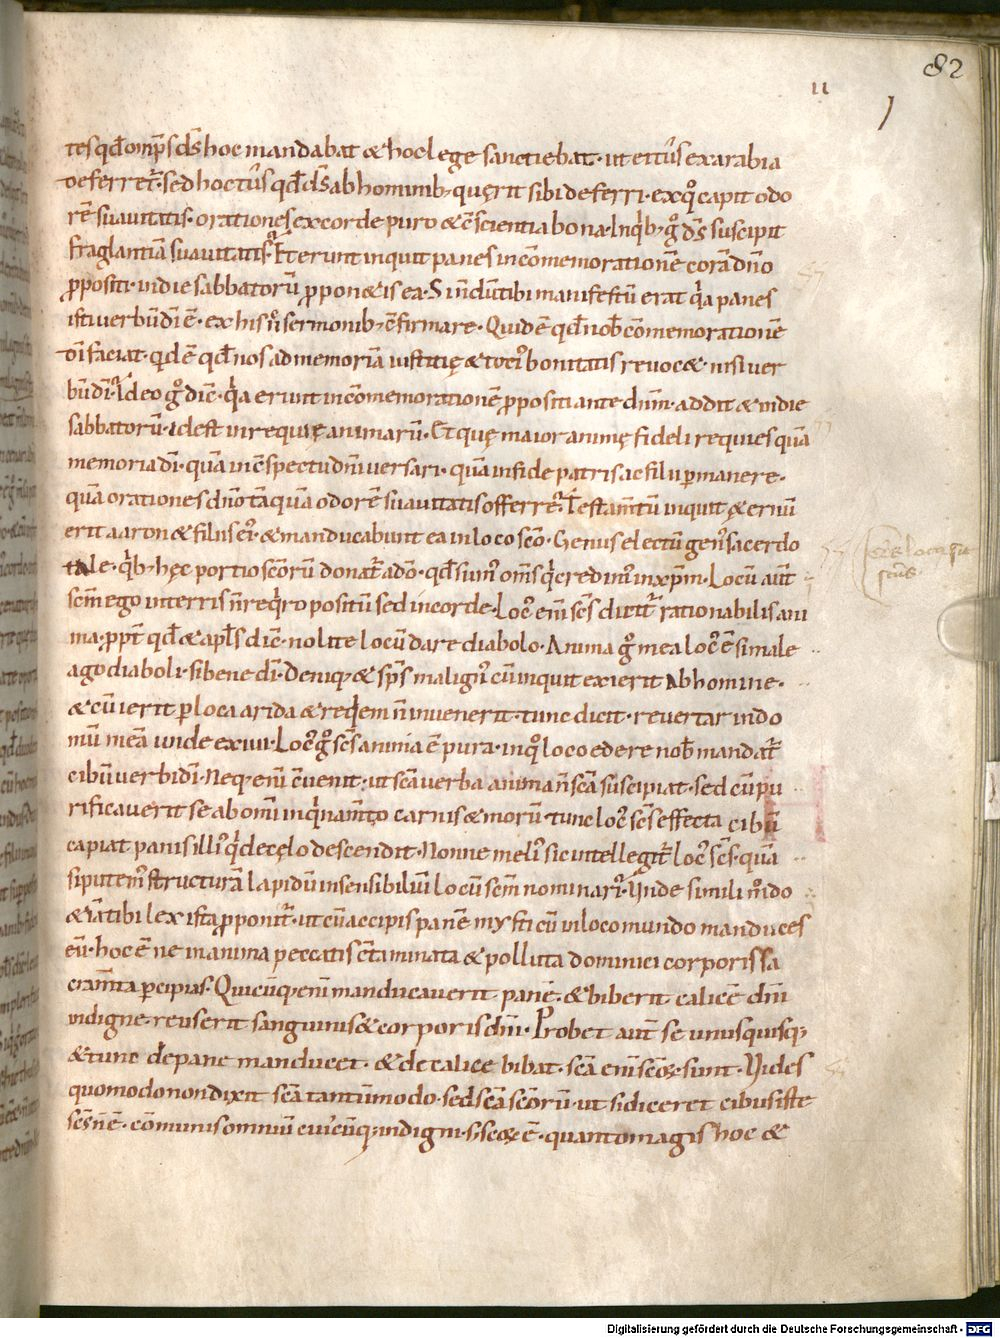 82
II
tes qđ omp̄s d̄s hoc mandabat & hoc lege sanctiebat · ut et tus ex arabia
deferret̄ · sed hoc tus qđ d̄s ab hominib; quęrit sibi deferri · ex q̊ capit odo
rē suauitatis · orationes ex corde puro & c̄scientia bona · In qb; g̊ d̄s suscipit
fraglantiā suauitatis · Et erunt inquit panes in cōmemorationē corā dn̄o
p̄positi · in die sabbatorū p̄pon& is ea · S in dūtibi manifestū erat qa panes
isti uerbū dī ē · ex his n̄ sermonib; c̄firmare · Quid ē qđ nob̄ cōmemorationē
dī faciat · qd ē qđ nos ad memoriā iustitię & toti' bonitatis reuoc& · nisi uer
bū dī · Ideo g̊ dic̄ · qa erunt in cōmemorationē p̄positi ante dn̄m · addit & in die
sabbatorū · id est in requie animarū · Et quę maior animę fideli requies quā
memoria dī · quā in c̄spectu dn̄i uersari · quā in fide patris ac filii p̄manere ·
quā orationes dn̄o tāquā odorē suauitatis offerre · Testam̄tū inquit ęternū
erit aaron & filiis ei' · & manducabunt ea in loco sc̄o · Genus electū gen' sacerdo
tale · qb; hęc portio sc̄orū donat̄ a dō · qđ sum' om̄s q credim' in xp̄m · Locū aut̄
sc̄m ego in terris n̄ reqro positū sed in corde · Loc' eni sc̄s dicit̄ rationabilis ani
ma · ppt̄ qđ & apl̄s dic̄ · nolite locū dare diabolo · Anima g̊ mea loc' ē si male
ago diaboli · si bene dī · Deniq; & sp̄s malign' cū inquit exierit ab homine ·
& cū ierit p̄ loca arida & requiem n̄ inuenerit · tunc dicit · reuertar in do
mū meā unde exiui · Loc' g̊ sc̄s anima ē pura · in q̊ loco edere nob̄ mandat̄
cibū uerbi dī · Neq; eni c̄uenit · ut sc̄a uerba anima n̄ sc̄a suscipiat · sed cū pu
rificauerit se ab om̄i inqnam̄to carnis & morū · tunc loc' sc̄s effecta cibū
capiat panis illi' q de cęlo descendit · Nonne meli' sic intellegit̄ loc' sc̄s · quā
si putem' structurā lapidū insensibiliū locū sc̄m nominari · Unde simili m̊do
& iā tibi lex ista p̄ponit̄ · ut cū accipis panē mysticū in loco mundo manduces
eū · hoc ē ne in anima peccatis c̄taminata & polluta dominici corporis sa
cram̄ta p̄cipias · Quicūq; eni manducauerit panē · & biberit calicē dn̄i
indigne · reus erit sanguinis & corporis dn̄i · Probet aut̄ se unusquisq;
& tunc de pane manducet · & de calice bibat · sc̄a eni sc̄oꝝ sunt · Uides
quomodo non dixit sc̄a tantūmodo · sed sc̄a sc̄orū · ut si diceret cibus iste
sc̄s n̄ ē · cōmunis omniū cui'cūq; indigni · s; sc̄oꝝ ē · quanto magis hoc &
Digitalisierung gefördert durch die Deutsche Forschungsgemeinschaft · DFG